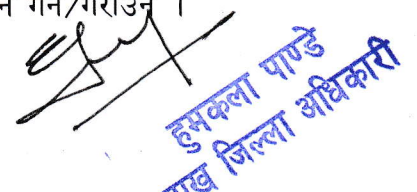 गर्ने/गराउने ।
हुमकला पाण्डे
जिल्ला अधिकारी